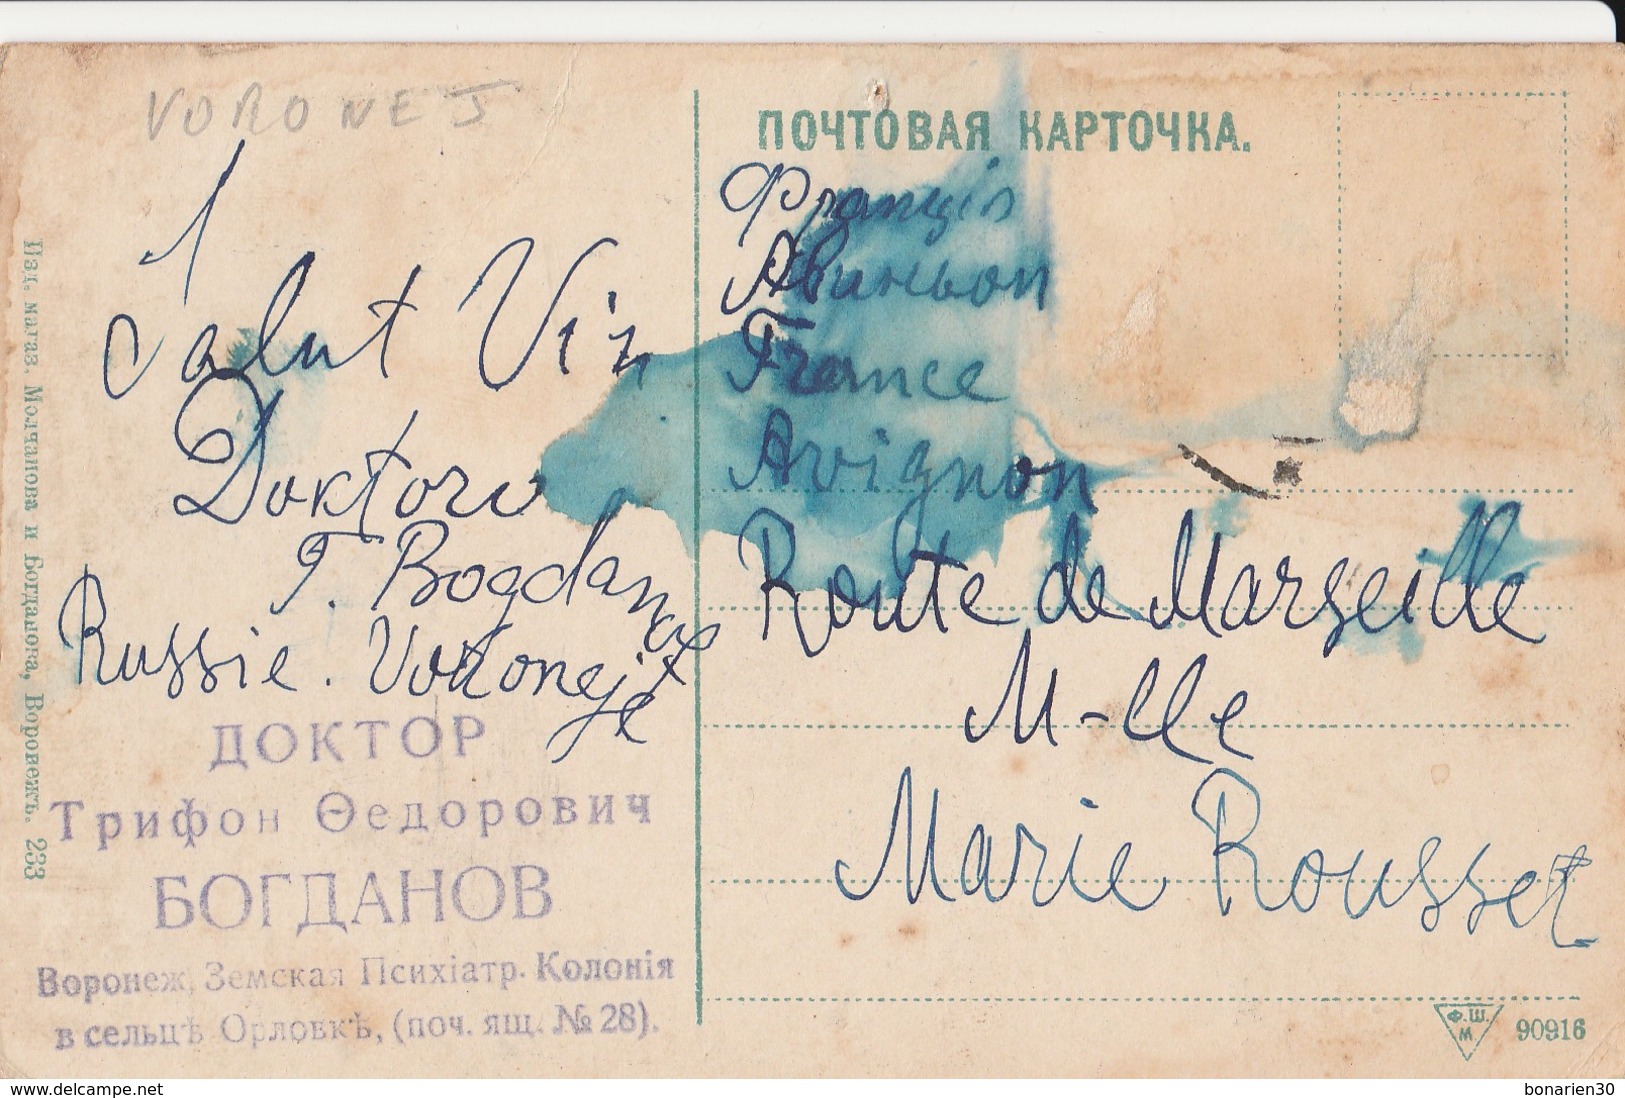 VORONEJ
Salut Vin
Doktoru
T. Bogdanoff
Russie. Voroneje
ДОКТОР
Трифон Ѳедорович
БОГДАНОВ
Воронеж, Земская Психіатр. Колонія
в сельцѣ Орловкѣ, (поч. ящ. № 28).
Изд. магаз. Молчанова и Богданова, Воронежъ. 233
ПОЧТОВАЯ КАРТОЧКА.
Франція
Авиньон
France
Avignon
Route de Marseille
M-lle
Marie Rousset
Ф.Ш.
М.
90916
www.delcampe.net
bonarien30